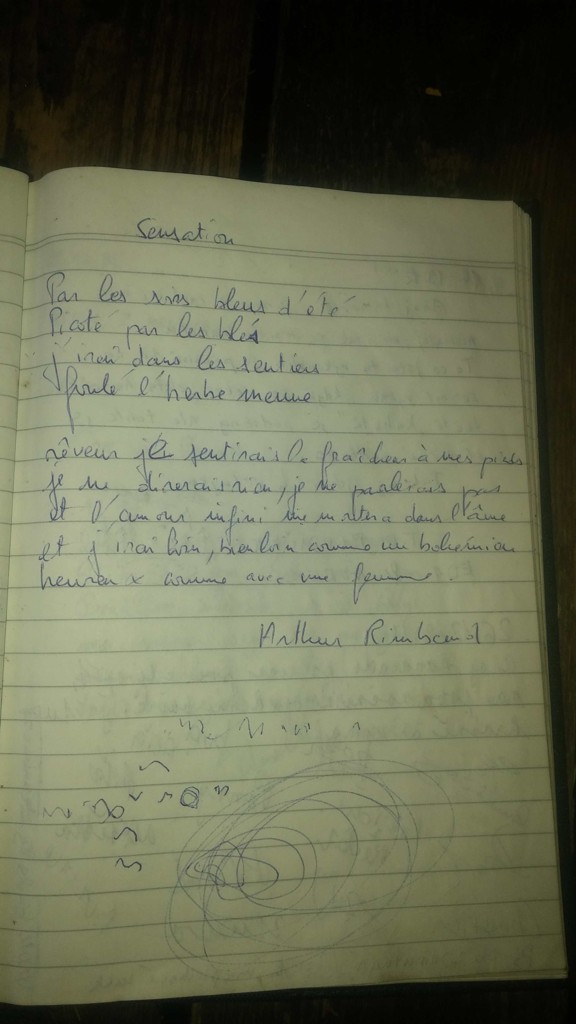 Sensation
Par les soirs bleus d'été
Picoté par les blés
j'irai dans les sentiers
foulé l'herbe menue
rêveur je sentirais la fraîcheur à mes pieds
je ne dirai rien, je ne parlerais pas
et l'amour infini me montera dans l'âme
et j'irai loin, bien loin comme un bohémien
heureux comme avec une femme.
Arthur Rimbaud